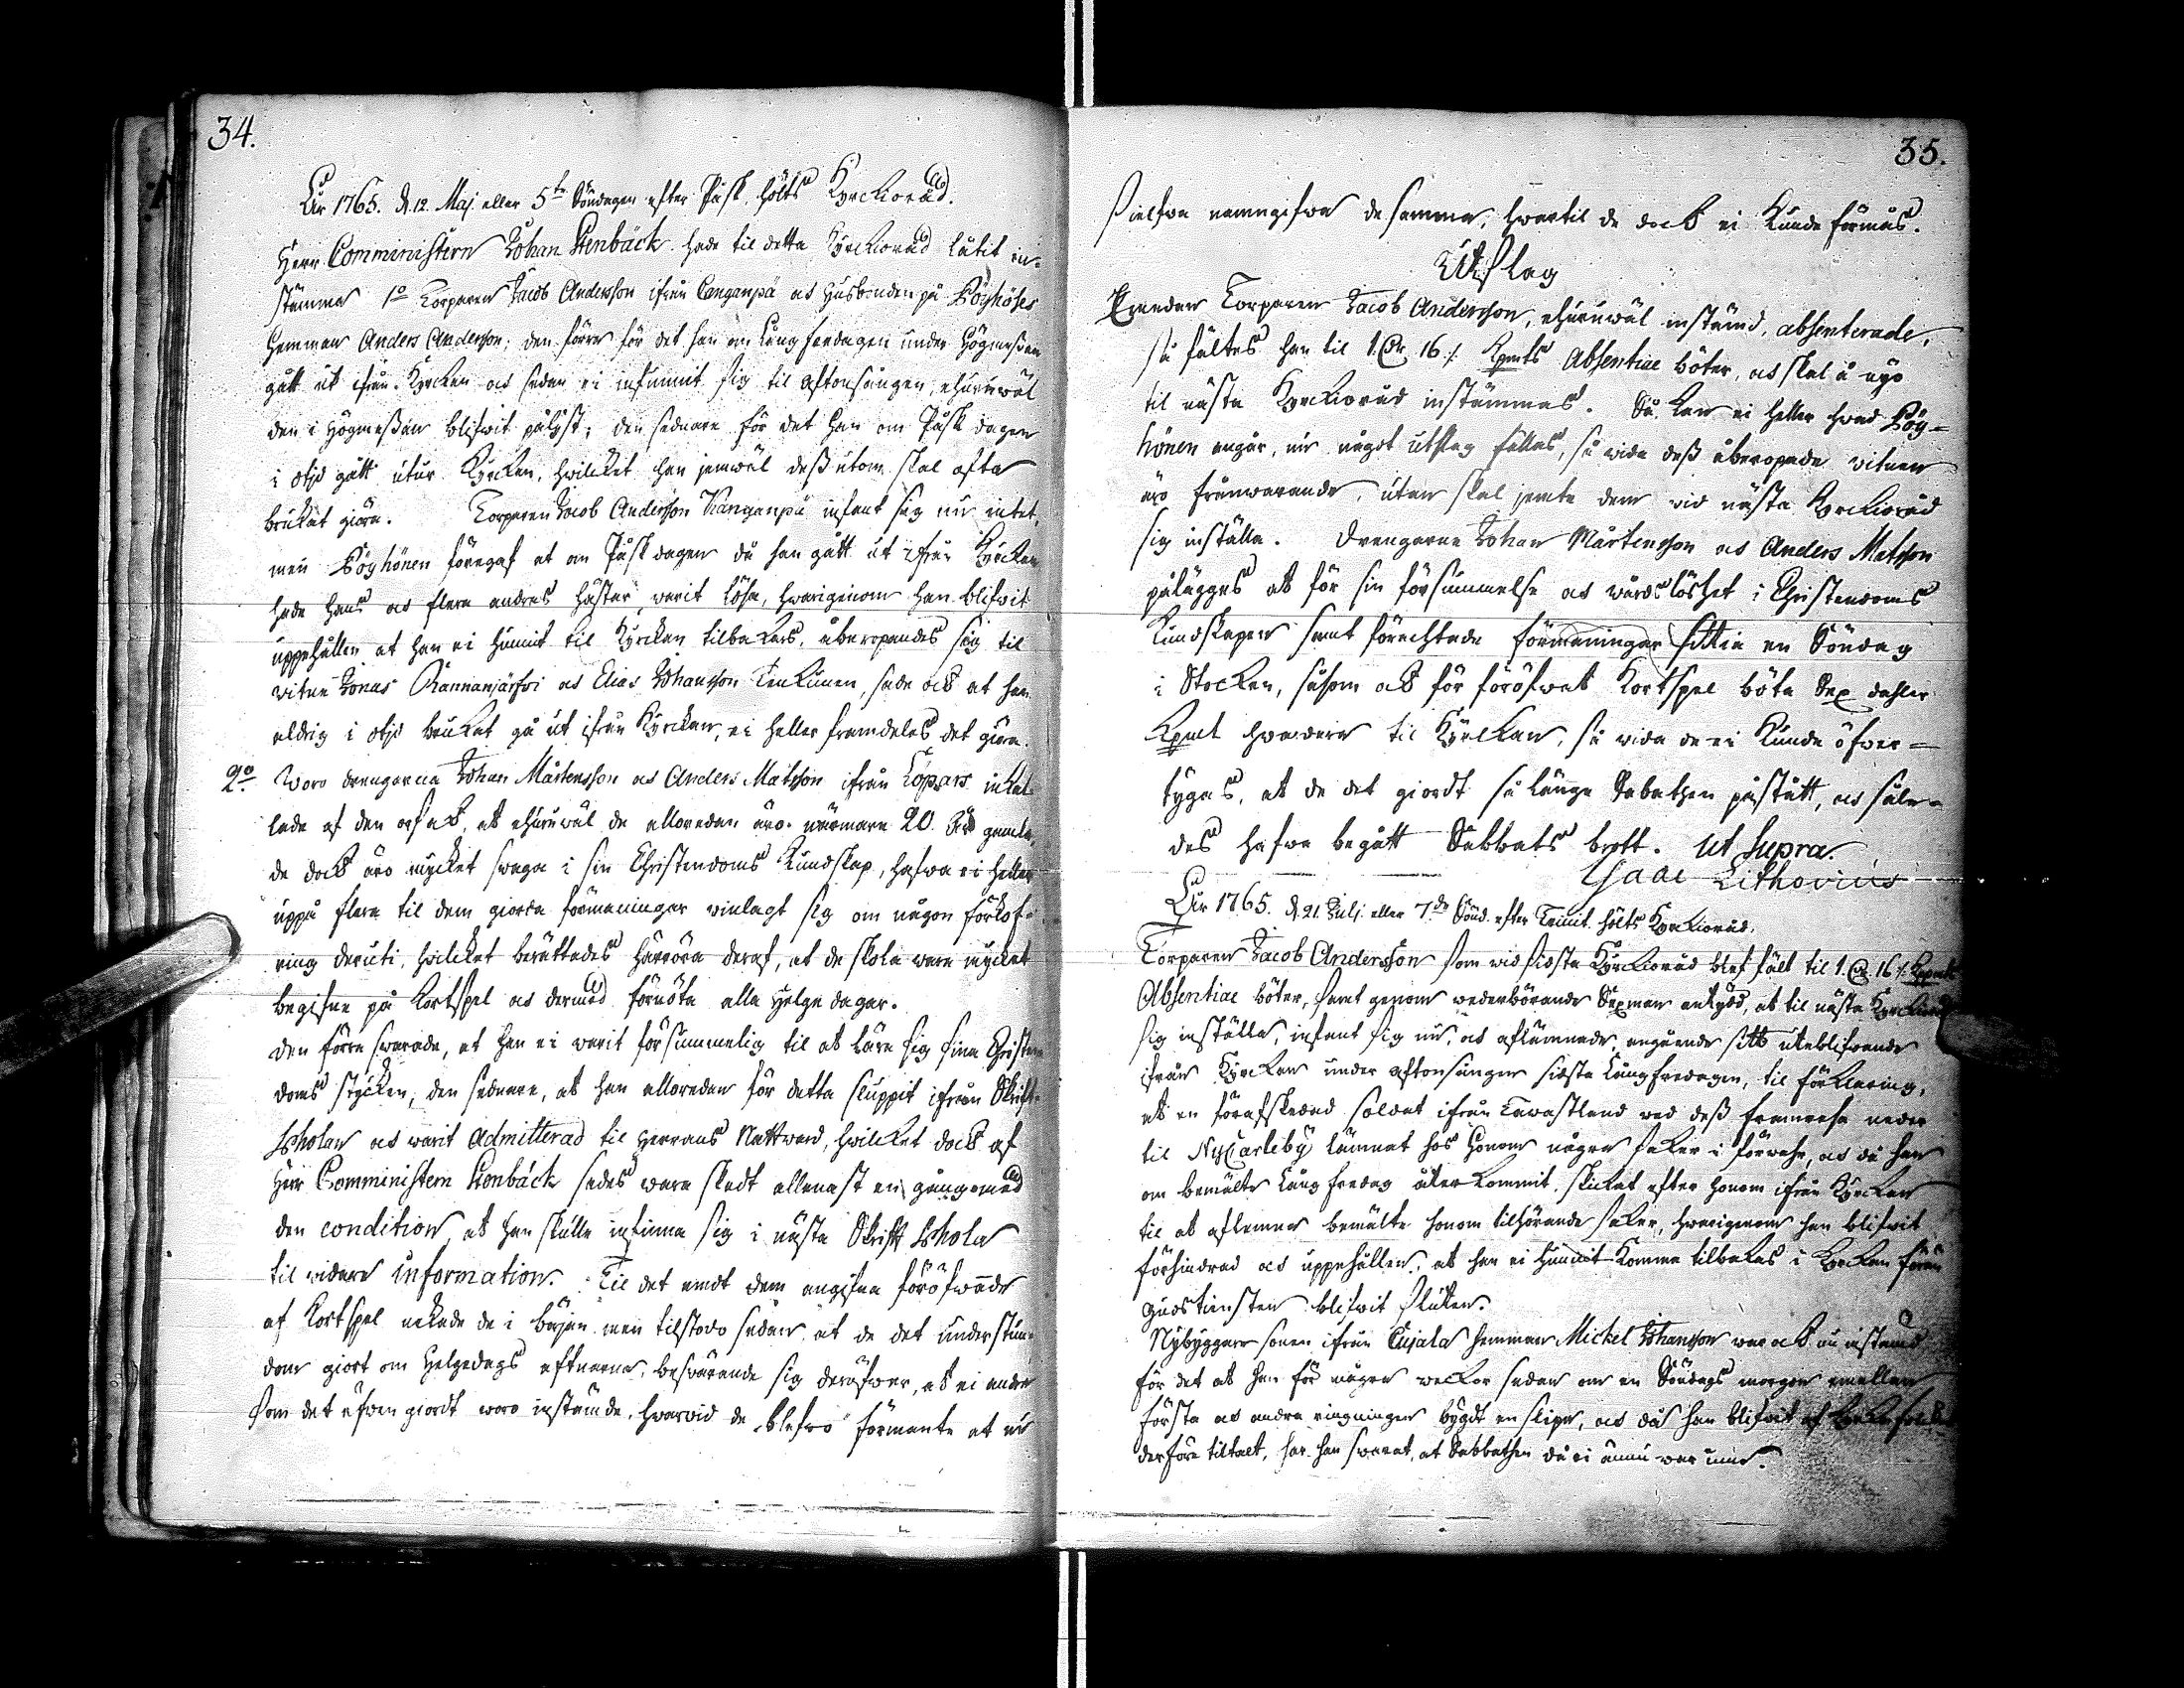 34.
År 1765. d. 12. Maj. eller 5te Söndagen efter Påsk. hölts Kyrckioråd.
Herr Comministern Johan Stenbäck hade til detta Kyrckioråd låtit in-
stämma 1o Torparen Jacob Andersson ifrån Canganpä ock Husbonden på Pöyhöses
hemman Anders Anderson; den förra för det han om Långfredagen under Högmessan
gått ut ifrån Kyrckan ock sedan ei infunnit sig til aftonsången, ehuruwäl
den i Högmessan blifwit pålyst; den sednare för det han om Påsk dagen
i otid gått utur Kyrckan, hwilcket han jemwäl dessutom skal ofta
brukat giöra. Torparen Jacob Anderson Kanganpä infant sig nu intet,
men Pöyhönen föregaf at om Påskdagen då han gått ut ifrån Kyrckan
hade hans ock flera andras hästar warit löse, hwarigenom han blifwit
uppehållen at han ei hunnit til Kyrckan tilbakars, åberopandes sig til
witne Jonas Rannanjärfwi ock Elias Johansson Tenkunen, sade ock at han
aldrig i otid brukat gå ut ifrån Kyrckan, ei heller framdeles det giöra.
2o Woro drengarna Johan Mårtensson ock Anders Matsson ifrån Löpars inkal-
lade af den orsak, at ehuruwäl de alloredan äro närmare 20 År gamla,
de dock äro mycket swaga i sin Christendoms Kundskap, hafwa ei heller
uppå flera til dem giorda förmaningar winlagt sig om någon förkof-
ring deruti, hwilcket berättades härröra deraf, at de skola wara mycket
begifne på Kortspel ock dermed förnöta alla Helgedagar.
Den förra swarade, at han ei warit försummelig til at lära sig sina Christen-
doms stycken, den sednare, at han alloredan för detta sluppit ifrån Skrift-
scholan ock warit admitterad til Herrans Nattward, hwilcket dock af
Herr Comministern Stenbäck sades wara skedt allenast en gång med
den condition, at han skulle infinna sig i nästa Skrift Schola
til widare information. Til det emot dem angifna föröfwade
af Kortspel nekade de i början men tilstodo sedan at de det understun-
dom giort om Helgedags eftnarna, beswärande sig deröfwer, at ei andra
som det äfwen giordt woro instämde, hwarwid de blefwo förmante at nu
35.
sielfwa namngifwa desamma, hwartil de dock ei kunde förmås.
Utslag
Emedan Torparen Jacob Andersson, ehuruwäl instämd, absenterade,
så fältes han til 1. Dr 16 /. Kpmts Absentiae böter, ock skal å nyo
til nästa Kyrckioråd instämmas. Så kan ei heller hwad Pöy-
hönen angår, nu något utslag fällas, så wida dess åberopade witnen
äro frånwarande, utan skal jemte dem wid nästa Kyrckioråd
sig inställa. Drengarne Johan Mårtensson ock Anders Matsson
pålägges at för sin försummelse ock wårdslöshet i Christendoms
Kundskapen samt förachtade förmaningar sittia en Söndag
i Stocken, såsom ock för föröfwat Kortspel böta Sex daler
Kpmt hwardera til Kyrckan, så wida de ei kunde öfwer-
tygas, at de det giordt så länge Sabathen påstått, ock såle-
des hafwa begått Sabbats brott. Ut Supra.
Isaac Lithovius
År 1765. d. 21. Julj. eller 7de Sönd. efter Trinit. hölts Kyrckioråd.
Torparen Jacob Andersson som wid sidsta Kyrckioråd blef fält til 1. Dr 16 /. Kopmts
Absentiae böter, samt genom wederbörande Sexman antydd, at til nästa Kyrckioråd
sig inställa, infant sig nu, ock aflämnade, angående sitt uteblifwande
ifrån Kyrckan under aftonsången sidsta Långfredagen, til förklaring,
at en förafskedad soldat ifrån Tawastland wed dess framresa neder
til NyCarleby lämnat hos honom någon saker i förwahr, ock då han
om bemälte Långfredag återkommit, skickat efter honom ifrån Kyrckan
til at aflemna bemälte honom tilhörande saker, hwarigenom han blifwit
förhindrad ock uppehållen, at han ei hunnit komma tilbakas i Kyrckan förän
gudstiensten blifwit sluten.
Nybyggare sonen ifrån Cujala hemman Michel Johansson war ock nu instämd
för det at han för någon weckor sedan om en Söndags morgon emellan
första ock andra ringningen bygdt en slipa, ock då han blifwit af
derföre tiltalt, har han swarat, at Sabbathen då ei ännu war inne.